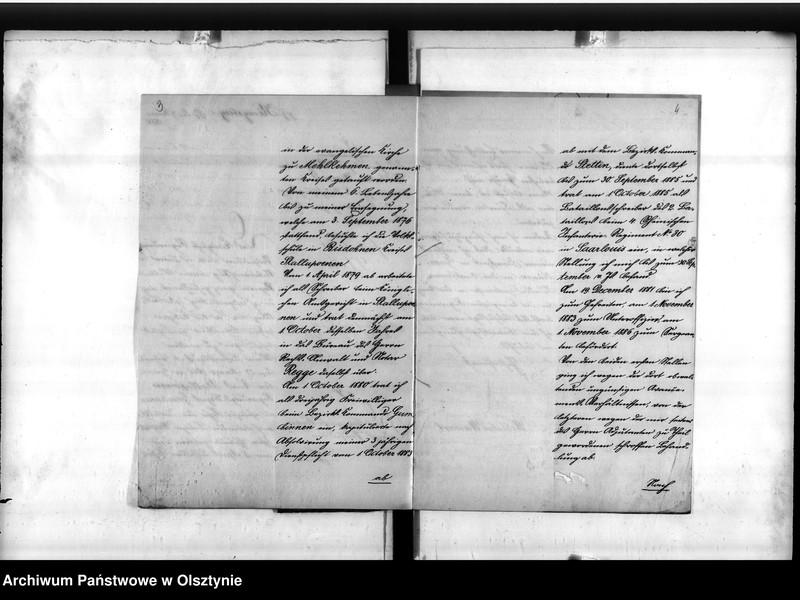 3
in der evangelischen Kirche
zu Mehlkehmen genann-
ten Kreises getauft worden.
Von meinem 6. Lebensjahre
bis zu meiner Einsegnung,
welche am 3. September 1876
stattfand, besuchte ich die Volks-
schule in Bisdohnen Kreises
Stallupoenen
Vom 1 April 1879 ab arbeitete
ich als Schreiber beim Königli-
chen Amtsgericht in Stallupoe-
nen und trat demnächst am
1 October desselben Jahres
in das Bureau des Herrn
Rechts-Anwalt und Notar
Regge daselbst über.
Am 1 October 1880 trat ich
als dreijährig Freiwilliger
beim Bezirks Commando Gum-
binnen ein, kapitulirte nach
Ableistung meiner 3 jährigen
Dienstpflicht vom 1 October 1883
ab
4
ab mit dem Bezirks Comman-
do Stettin, diente dortselbst
bis zum 30. September 1885 und
trat am 1 October 1885 als
Bataillonsschreiber des 2. Ba-
taillons beim 4 Rheinischen
Infanterie Regiment No 30
in Saarlouis ein, in welcher
Stellung ich mich bis zum
Am 13 December 1881 bin ich
zum Gefreiten, am 1. November
1883 zum Unteroffizier, am
1. November 1886 zum Sergean-
ten befördert.
Von den beiden ersten Stellen
ging ich wegen der dort obwal-
tenden ungünstigen Avance-
ments Verhältnisse, von der
letzteren wegen der mir seitens
des Herrn Adjutanten zu Theil
gewordenen schroffen Behand-
lung ab.
Nach
Archiwum Państwowe w Olsztynie